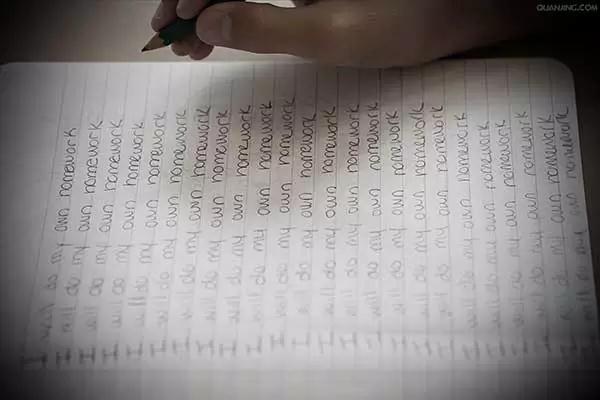 I will do my own homework
I will do my own homework
I will do my own homework
I will do my own homework
I will do my own homework
I will do my own homework
I will do my own homework
I will do my own homework
I will do my own homework
I will do my own homework
I will do my own homework
I will do my own homework
I will do my own homework
I will do my own homework
I will do my own homework
I will do my own homework
I will do my own homework
I will do my own homework
I will do my own homework
I will do my own homework
I will do my own homework
I will do my own homework
I will do my own homework
I will do my own homework
QUANJING.COM